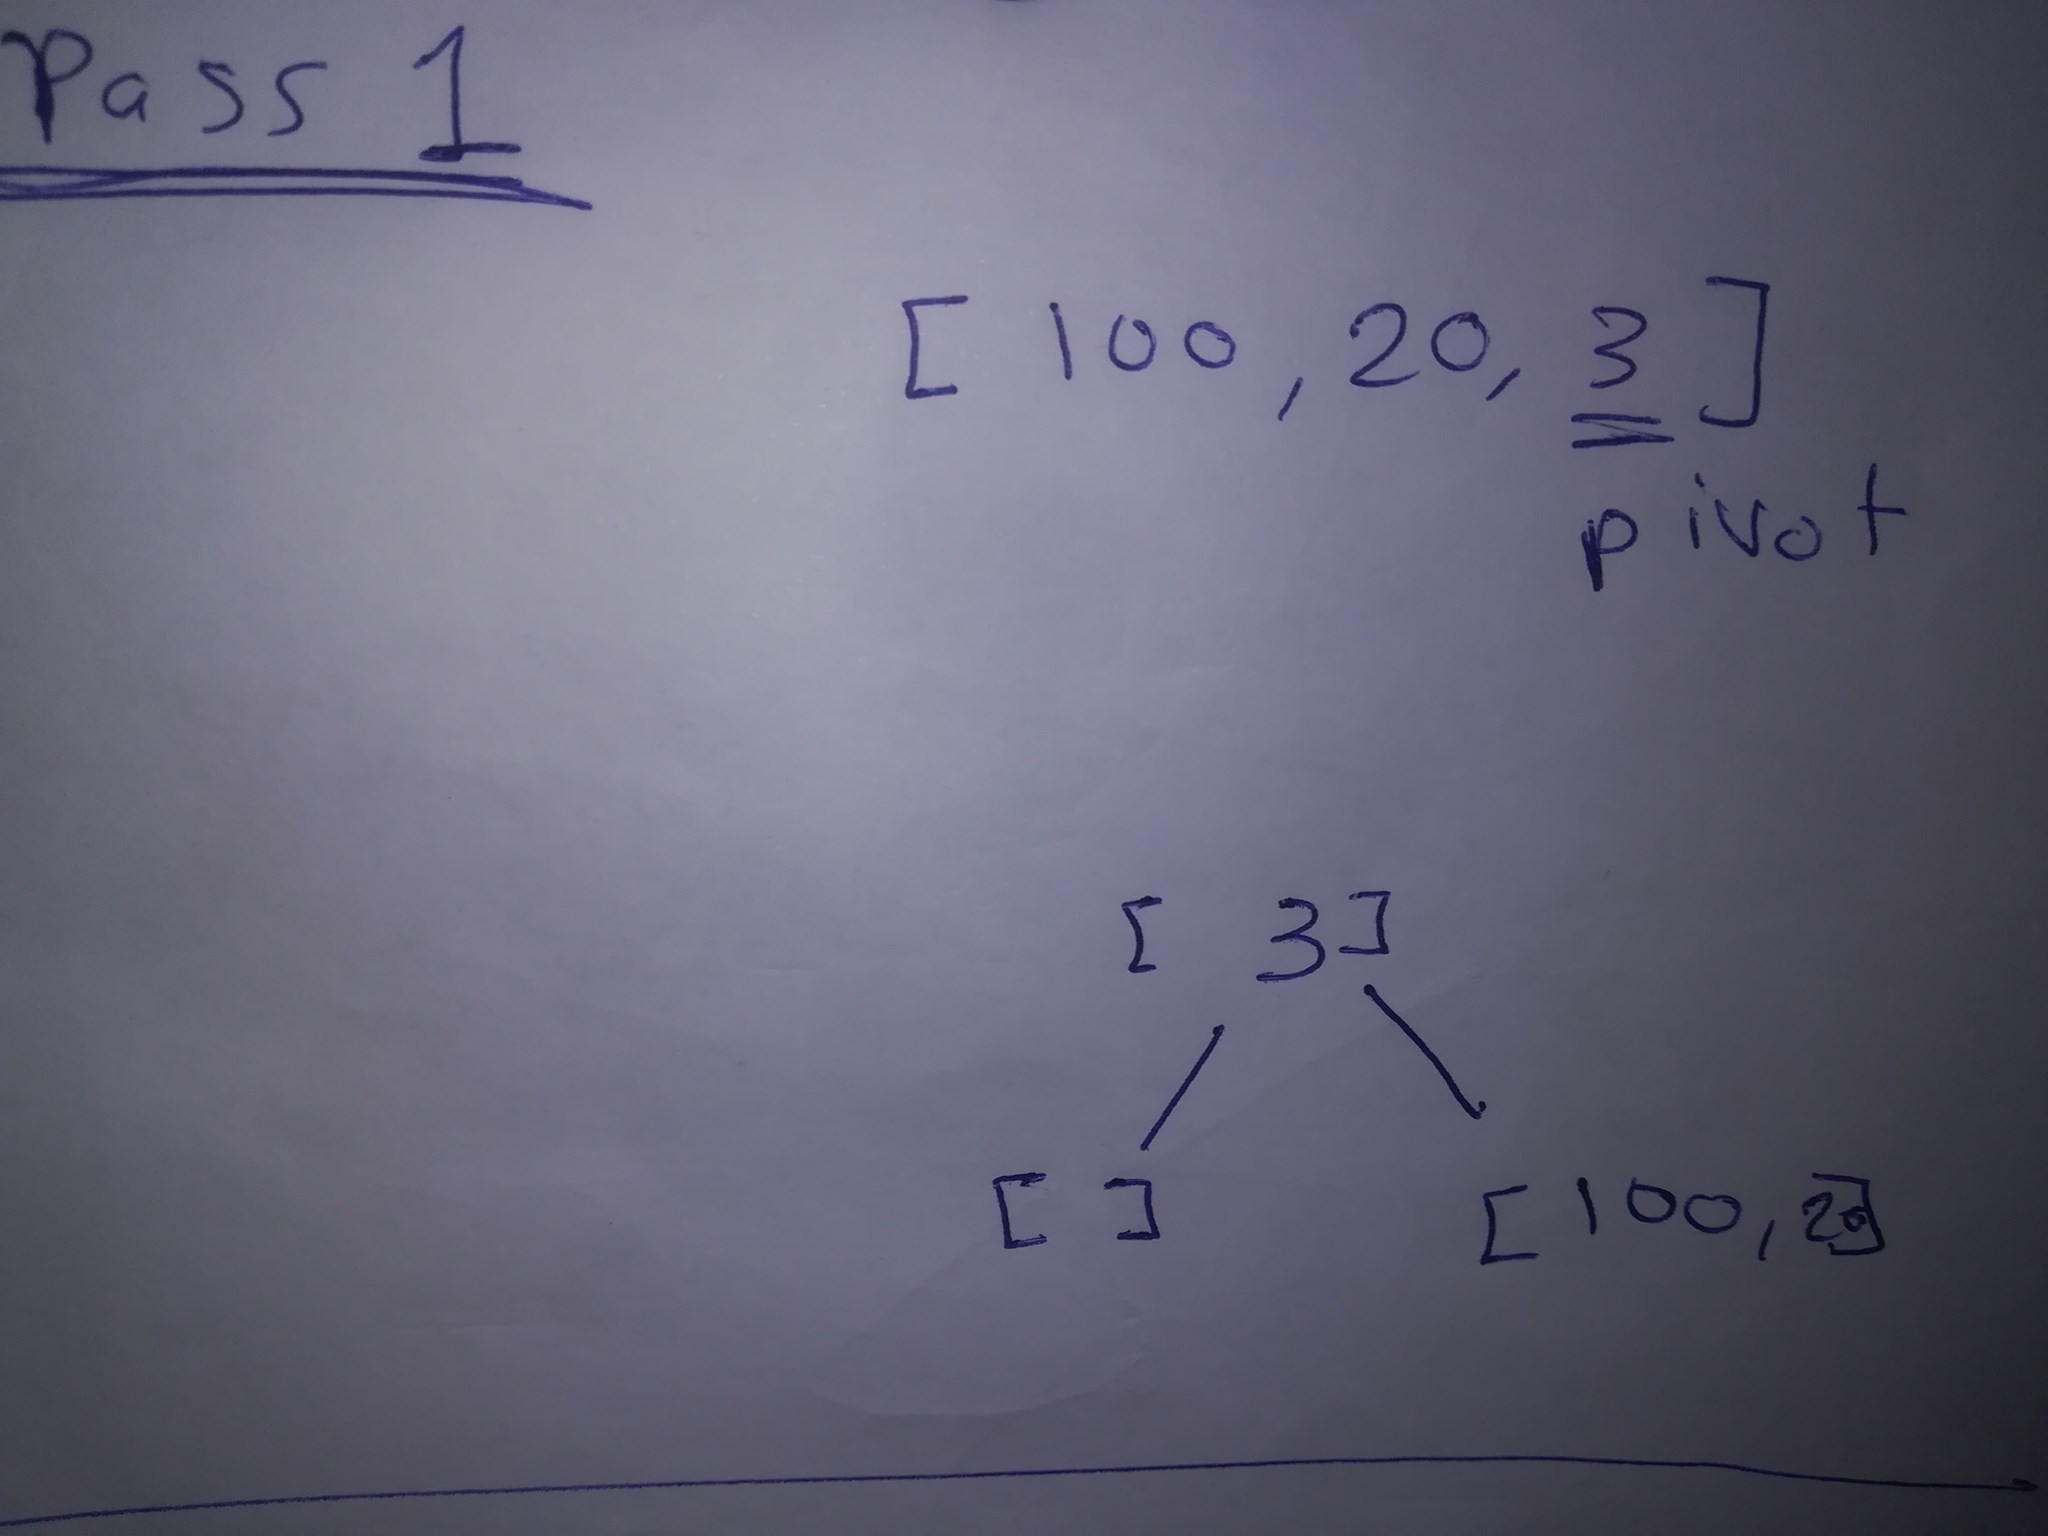 Pass 1
[ 100, 20, 3 ]
pivot
[ 3]
[ ] [ 100, 20]